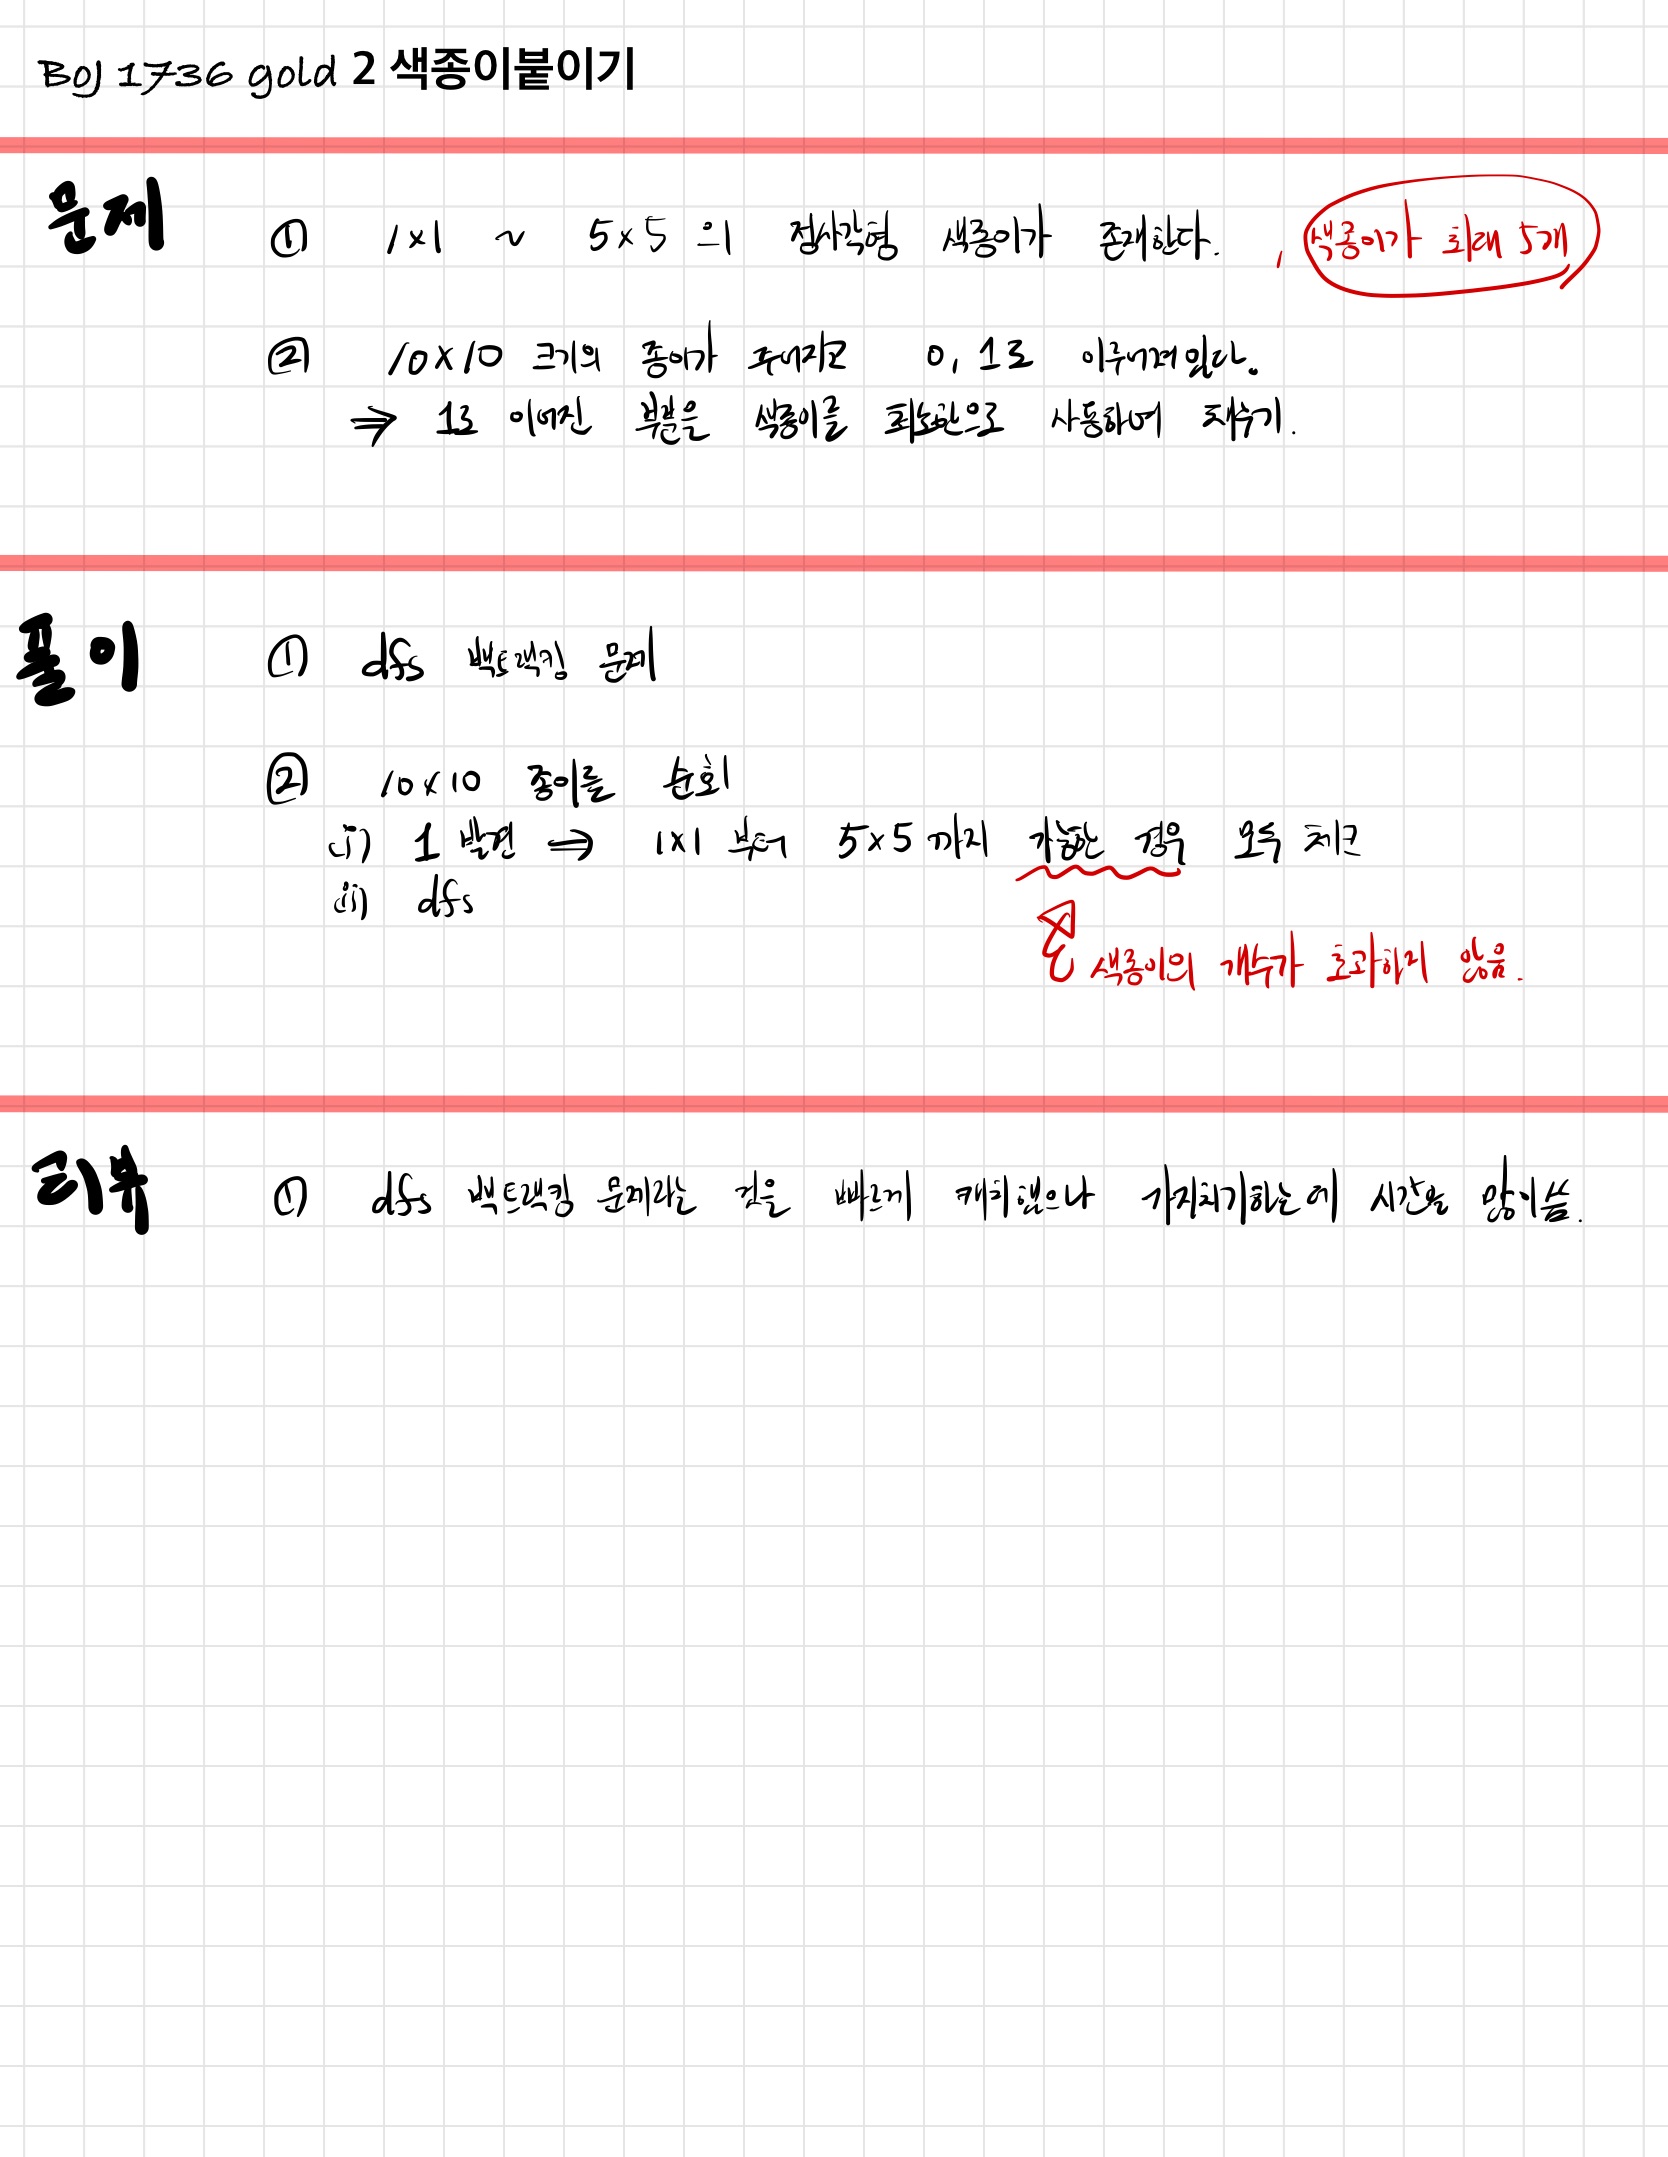 Boj 1736 gold 2 색종이붙이기
문제
① 1x1 ~ 5x5 의 정사각형 색종이가 존재한다. , 색종이가 최대 5개
② 10x10 크기의 종이가 주어지고 0, 1로 이루어져있다.
⇒ 1로 이어진 부분을 색종이를 최소한으로 사용하여 채우기.
풀이
① dfs 백트랙킹 문제
② 10x10 종이를 순회
i) 1 발견 ⇒ 1x1 부터 5x5 까지 가능한 경우 모두 체크
ii) dfs
색종이의 개수가 초과하지 않음.
리뷰
① dfs 백트랙킹 문제라는 것을 빠르게 캐치했으나 가지치기하는에 시간을 많이씀.